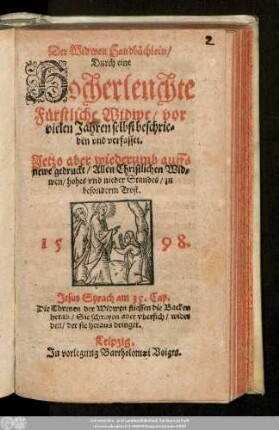 2
Der Widwen Handbüchlein/
Durch eine
Hocherleuchte
Fürstliche Widwe/ vor
vielen Jahren selbst beschrie-
ben vnd verfasset.
Jetzo aber wiederumb auffs
newe gedruckt/ Allen Christlichen Wid-
wen/ hohes vnd nieder Standes/ zu
besonderm Trost.
15 98.
Jesus Syrach am 35. Cap.
Die Threnen der Widwen fliessen die Backen
herab/ Sie schreyen aber vbersich/ wider
den/ der sie heraus dringet.
Leipzig,
In vorlegung Bartholomæi Voigts.